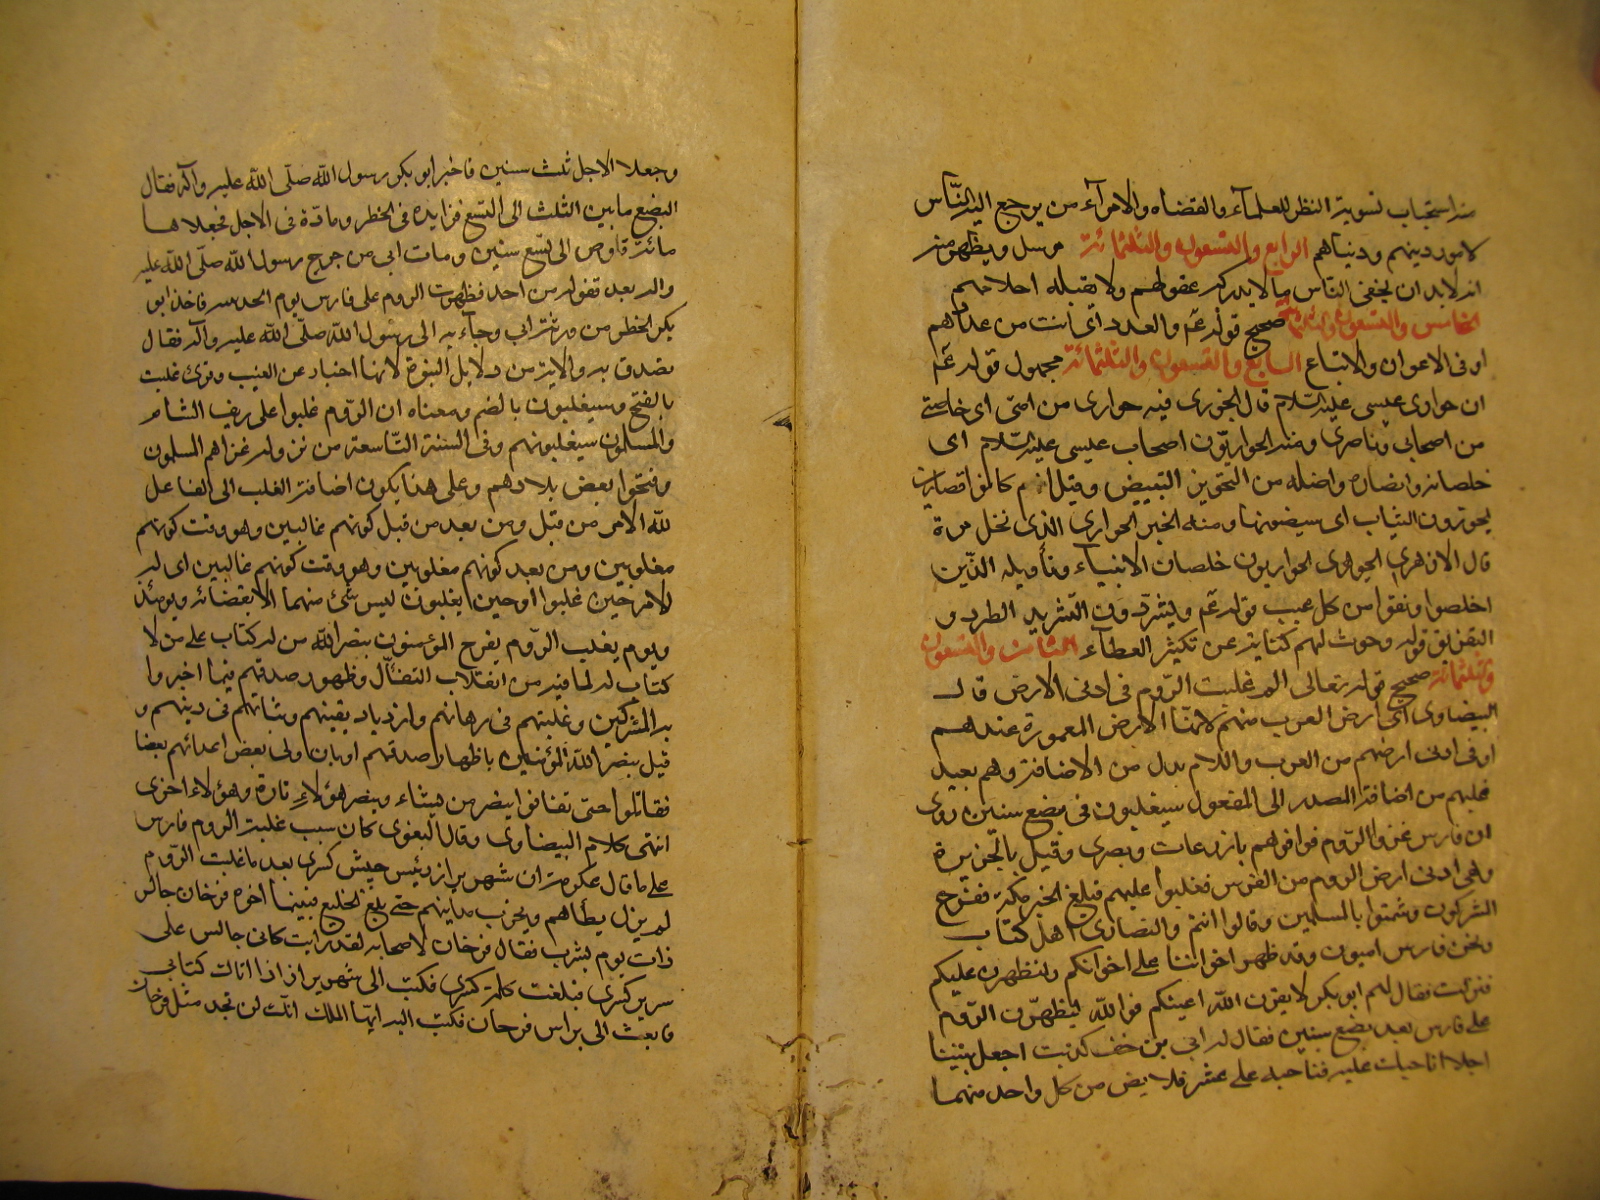 منه استحباب تسوية النظر للعلمآء والقضاه والامرآء من يرجع اليه النّاس
لامور دينهم ودنياهم الرابع والتسعون والثلثمائة مرسل ويظهر منه
انه لابد ان يخفى النّاس ما لا يدركه عقولهم ولا يقبله احلامهم
الخامس والتسعون والثلثمائة صحيح قوله عم والعدد اى انت من عدادهم
او فى الاعوان والاتباع السابع والتسعون والثلثمائة مجهول قوله عم
ان حوارى عيسى عليه السّلام قال الجزرى فيه حوارى من امتى اى خاصتى
من اصحابى وناصرى ومنه الحواريّون اصحاب عيسى عليه السّلام اى
خلصانه وانصاره واصله من التحوير التبييض وقيل انهم كانوا قصارين
يحورون الثياب اى يبيضونها ومنه الخبز الحوارى الذى نخل مرة
قال الازهرى الحواريون خلصان الانبيآء وتأويله الذّين
اخلصوا ونقوا من كل عيب قوله عم وليشرّدون التّشريد الطرد و
التفريق قوله وحوت لهم كناية عن تكثير العطآء الثامن والتسعون
والثلثمائة صحيح قوله تعالى الم غلبت الرّوم فى ادنى الارض قال
البيضاوى اى ارض العرب منهم لانّها الارض المعهودة عندهم
او فى ادنى ارضهم من العرب واللام بدل من الاضافة وهم بعد
غلبهم من اضافة المصدر الى المفعول سيغلبون فى بضع سنين روى
ان فارس غزوا الرّوم فوافوهم باذرعات وبصرى وقيل بالجزيرة
وهى ادنى ارض الروم من الفرس فغلبوا عليهم فبلغ الخبر مكة ففرح
المشركون وشمتوا بالمسلمين وقالوا انتم والنصارى اهل كتاب
ونحن وفارس اميون وقد ظهر اخواننا على اخوانكم ولنظهرن عليكم
فنزلت فقال لهم ابو بكر لا يقرن الله اعينكم فوالله ليظهرّن الرّوم
على فارس بعد بضع سنين فقال له ابى بن خلف كذبت اجعل بيننا
اجلا اناحبك عليه فناحبه على عشر قلايص من كل واحد منهما
وجعلا الاجل ثلث سنين فاخبر ابو بكر رسول الله صلّى الله عليه وآله فقال
البضع ما بين الثلث الى التسع فزايده فى الخطر ومادّه فى الاجل فجعلاها
مائة قلوص الى تسع سنين ومات ابى من جرح رسول الله صلّى الله عليه
وآله بعد قفوله من احد فظهرت الروم على فارس يوم الحديبية فاخذ ابو
بكر الخطر من ورثة ابى وجآء به الى رسول الله صلّى الله عليه وآله فقال
تصدق به والاية من دلايل النبوة لانها اخبار عن الغيب وقرئ غلبت
بالفتح وسيغلبون بالضم ومعناه ان الرّوم غلبوا على ريف الشام
والمسلمون سيغلبونهم وفى السنة التّاسعة من نزوله غزاهم المسلمون
وفتحوا بعض بلادهم وعلى هذا يكون اضافة الغلب الى الفاعل
لله الامر من قبل ومن بعد من قبل كونهم غالبين وهو وقت كونهم
مغلوبين ومن بعد كونهم مغلوبين وهو وقت كونهم غالبين اى له
الامر حين غلبوا وحين يغلبون ليس شئ منهما الا بقضائه ويومئذ
ويوم يغلب الرّوم يفرح المؤمنون بنصر الله من له كتاب على من لا
كتاب له لما فيه من انقلاب التفأّل وظهور صدقهم فيما اخبروا
به المشركين وغلبتهم فى رهانهم وازدياد يقينهم وثباتهم فى دينهم و
قيل بنصر الله المؤمنين باظهار صدقهم او بان ولى بعض اعدائهم بعضا
فقاتلوا حتى تفانوا ينصر من يشاء وينصر هؤلاء تارة وهؤلاء اخرى
انتهى كلام البيضاوى وقال البغوى كان سبب غلبة الروم فارس
على ما قال عكرمة ان شهريراز رئيس جيش كسرى بعد ما غلبت الرّوم
لم يزل يطأهم ويخرب مداينهم حتى بلغ الخليج فبينما اخوه فرخان جالس
ذات يوم يشرب فقال فرخان لاصحابه لقد رايت كانى جالس على
سرير كسرى فبلغت كلمته كسرى فكتب الى شهريراز اذا اتاك كتابى
فابعث الى براس فرخان فكتب اليه ايّها الملك انّك لن تجد مثل فرخان